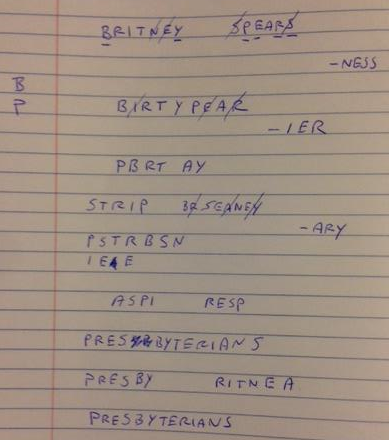 BRITNEY SPEARS
-NESS
B
P BIRTYPEAR
-IER
PBRT AY
STRIP BRSEANEY
-ARY
PSTRBSN
IEAE
ASPI RESP
PRESBYTERIANS
PRESBY RITNEA
PRESBYTERIANS